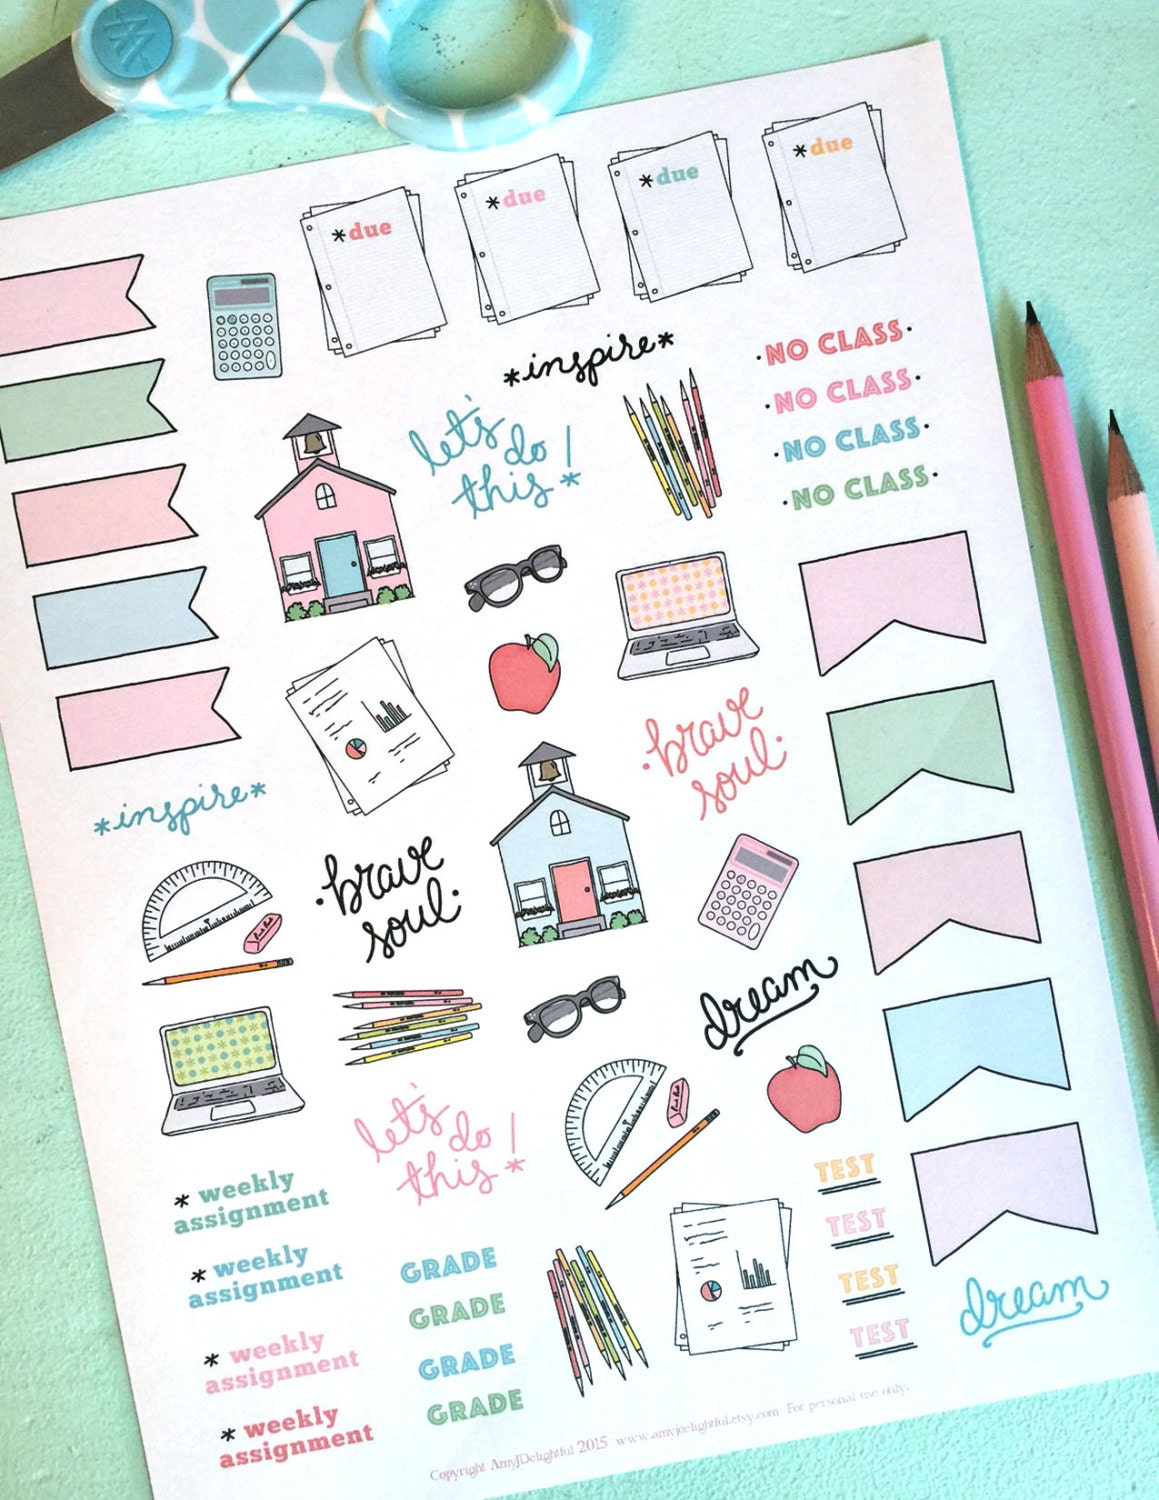 *due
*due
*due
*due
*inspire*
·NO CLASS·
·NO CLASS·
·NO CLASS·
·NO CLASS·
let's
do!
this*
·brave
soul·
*inspire*
·brave
soul·
dream
let's
do!
this*
* weekly
assignment
* weekly
assignment
* weekly
assignment
* weekly
assignment
GRADE
GRADE
GRADE
GRADE
TEST
TEST
TEST
TEST
dream
Copyright AmyJDelightful 2015 www.amyjdelightful.etsy.com For personal use only.